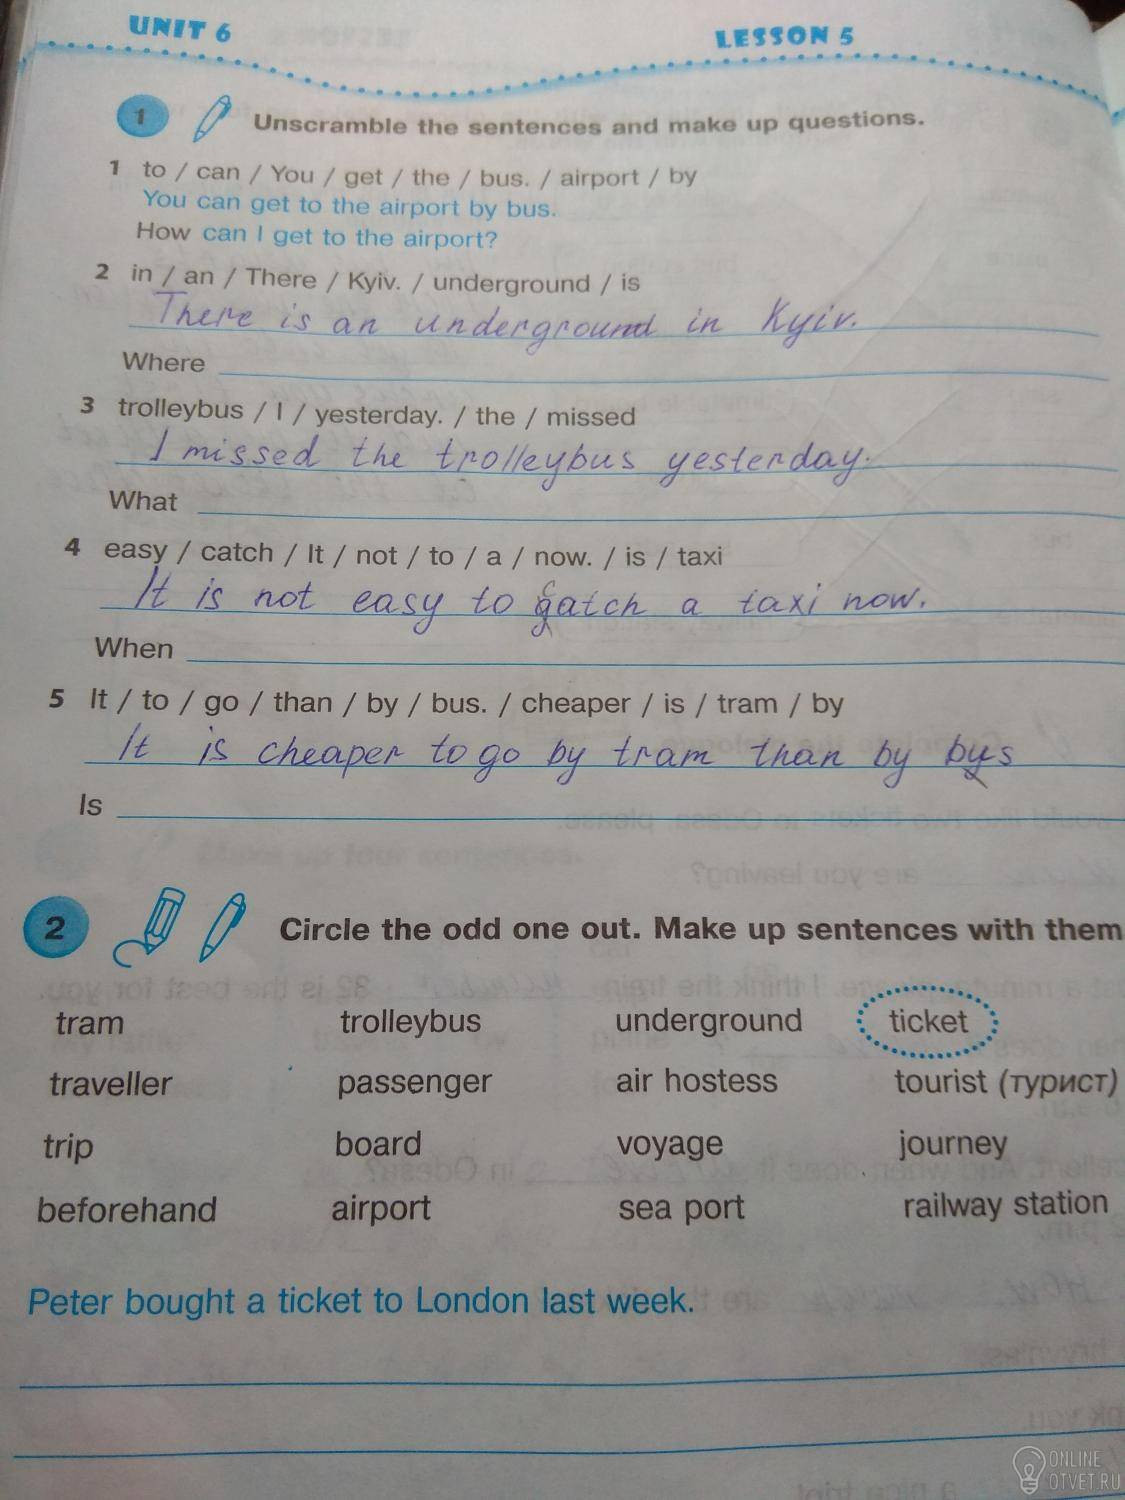 UNIT 6
LESSON 5
1 Unscramble the sentences and make up questions.
1 to / can / You / get / the / bus. / airport / by
You can get to the airport by bus.
How can I get to the airport?
2 in / an / There / Kyiv. / underground / is
There is an underground in Kyiv.
Where
3 trolleybus / I / yesterday. / the / missed
I missed the trolleybus yesterday.
What
4 easy / catch / It / not / to / a / now. / is / taxi
It is not easy to catch a taxi now.
When
5 It / to / go / than / by / bus. / cheaper / is / tram / by
It is cheaper to go by tram than by bus
Is
2 Circle the odd one out. Make up sentences with them
tram trolleybus underground ticket
traveller passenger air hostess tourist (турист)
trip board voyage journey
beforehand airport sea port railway station
Peter bought a ticket to London last week.
ONLINE
OTVET.RU